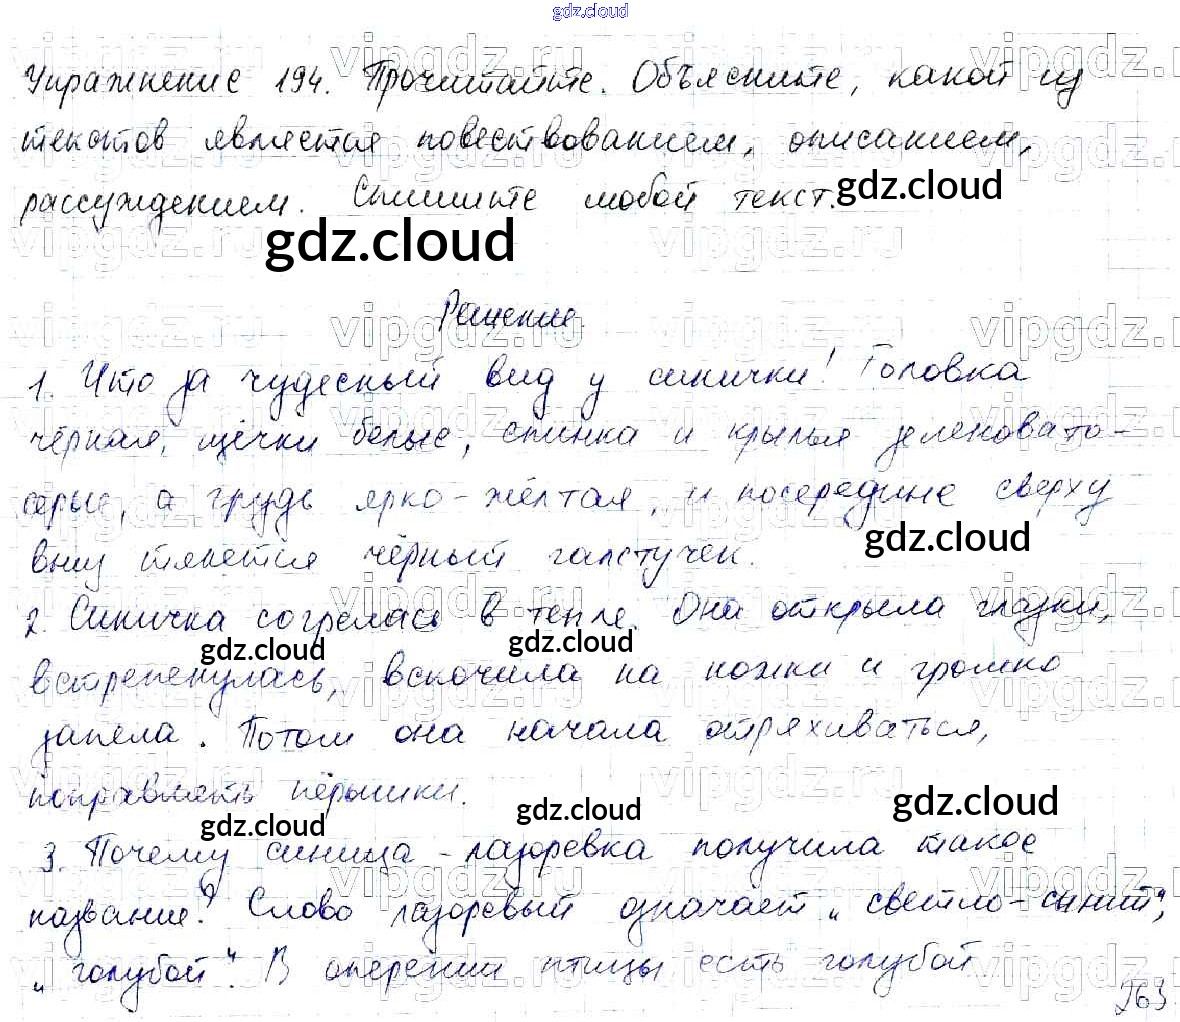 gdz.cloud
Упражнение 194. Прочитайте. Объясните, какой из
текстов является повествованием, описанием,
рассуждением. Спишите любой текст.
gdz.cloud
gdz.cloud
Решение
1. Что за чудесный вид у синички! Головка
чёрная, щёчки белые, спинка и крылья зеленовато-
серые, а грудь ярко-жёлтая, и посередине сверху
вниз тянется чёрный галстучек.
gdz.cloud
2. Синичка согрелась в тепле. Она открыла глазки,
gdz.cloud gdz.cloud
встрепенулась, вскочила на ножки и громко
запела. Потом она начала отряхиваться,
поправлять пёрышки.
gdz.cloud gdz.cloud gdz.cloud
3. Почему синица-лазоревка получила такое
название? Слово лазоревый означает „светло-синий",
„голубой". В оперении птицы есть голубой
263